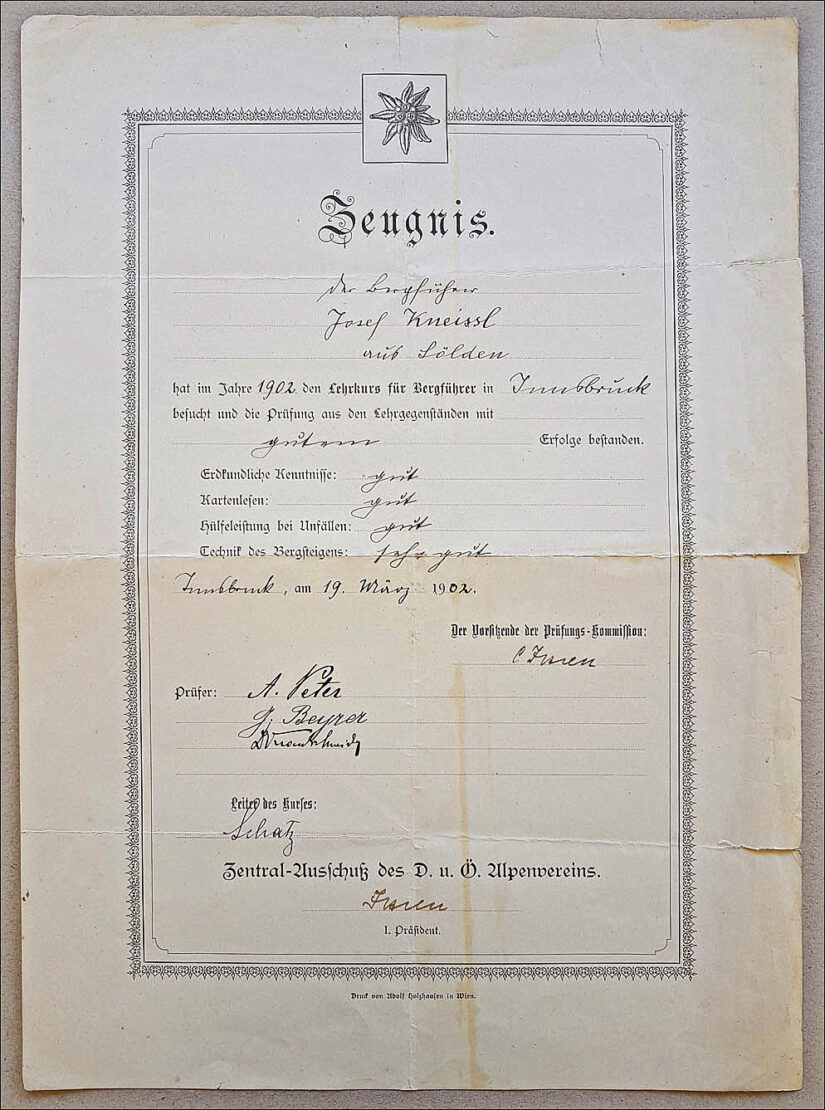 Zeugnis.
der Bergführer
Josef Kneissl
aus Sölden
hat im Jahre 1902 den Lehrkurs für Bergführer in Innsbruck
besucht und die Prüfung aus den Lehrgegenständen mit
gutem Erfolge bestanden.
Erdkundliche Kenntnisse: gut
Kartenlesen: gut
Hülfeleistung bei Unfällen: gut
Technik des Bergsteigens: sehr gut
Innsbruck, am 19. März 1902.
Der Vorsitzende der Prüfungs-Kommission:
Prüfer: A. Peter
J. Beyrer
Leiter des Kurses:
Schatz
Zentral-Ausschuß des D. u. Ö. Alpenvereins.
I. Präsident.
Druck von Adolf Holzhausen in Wien.